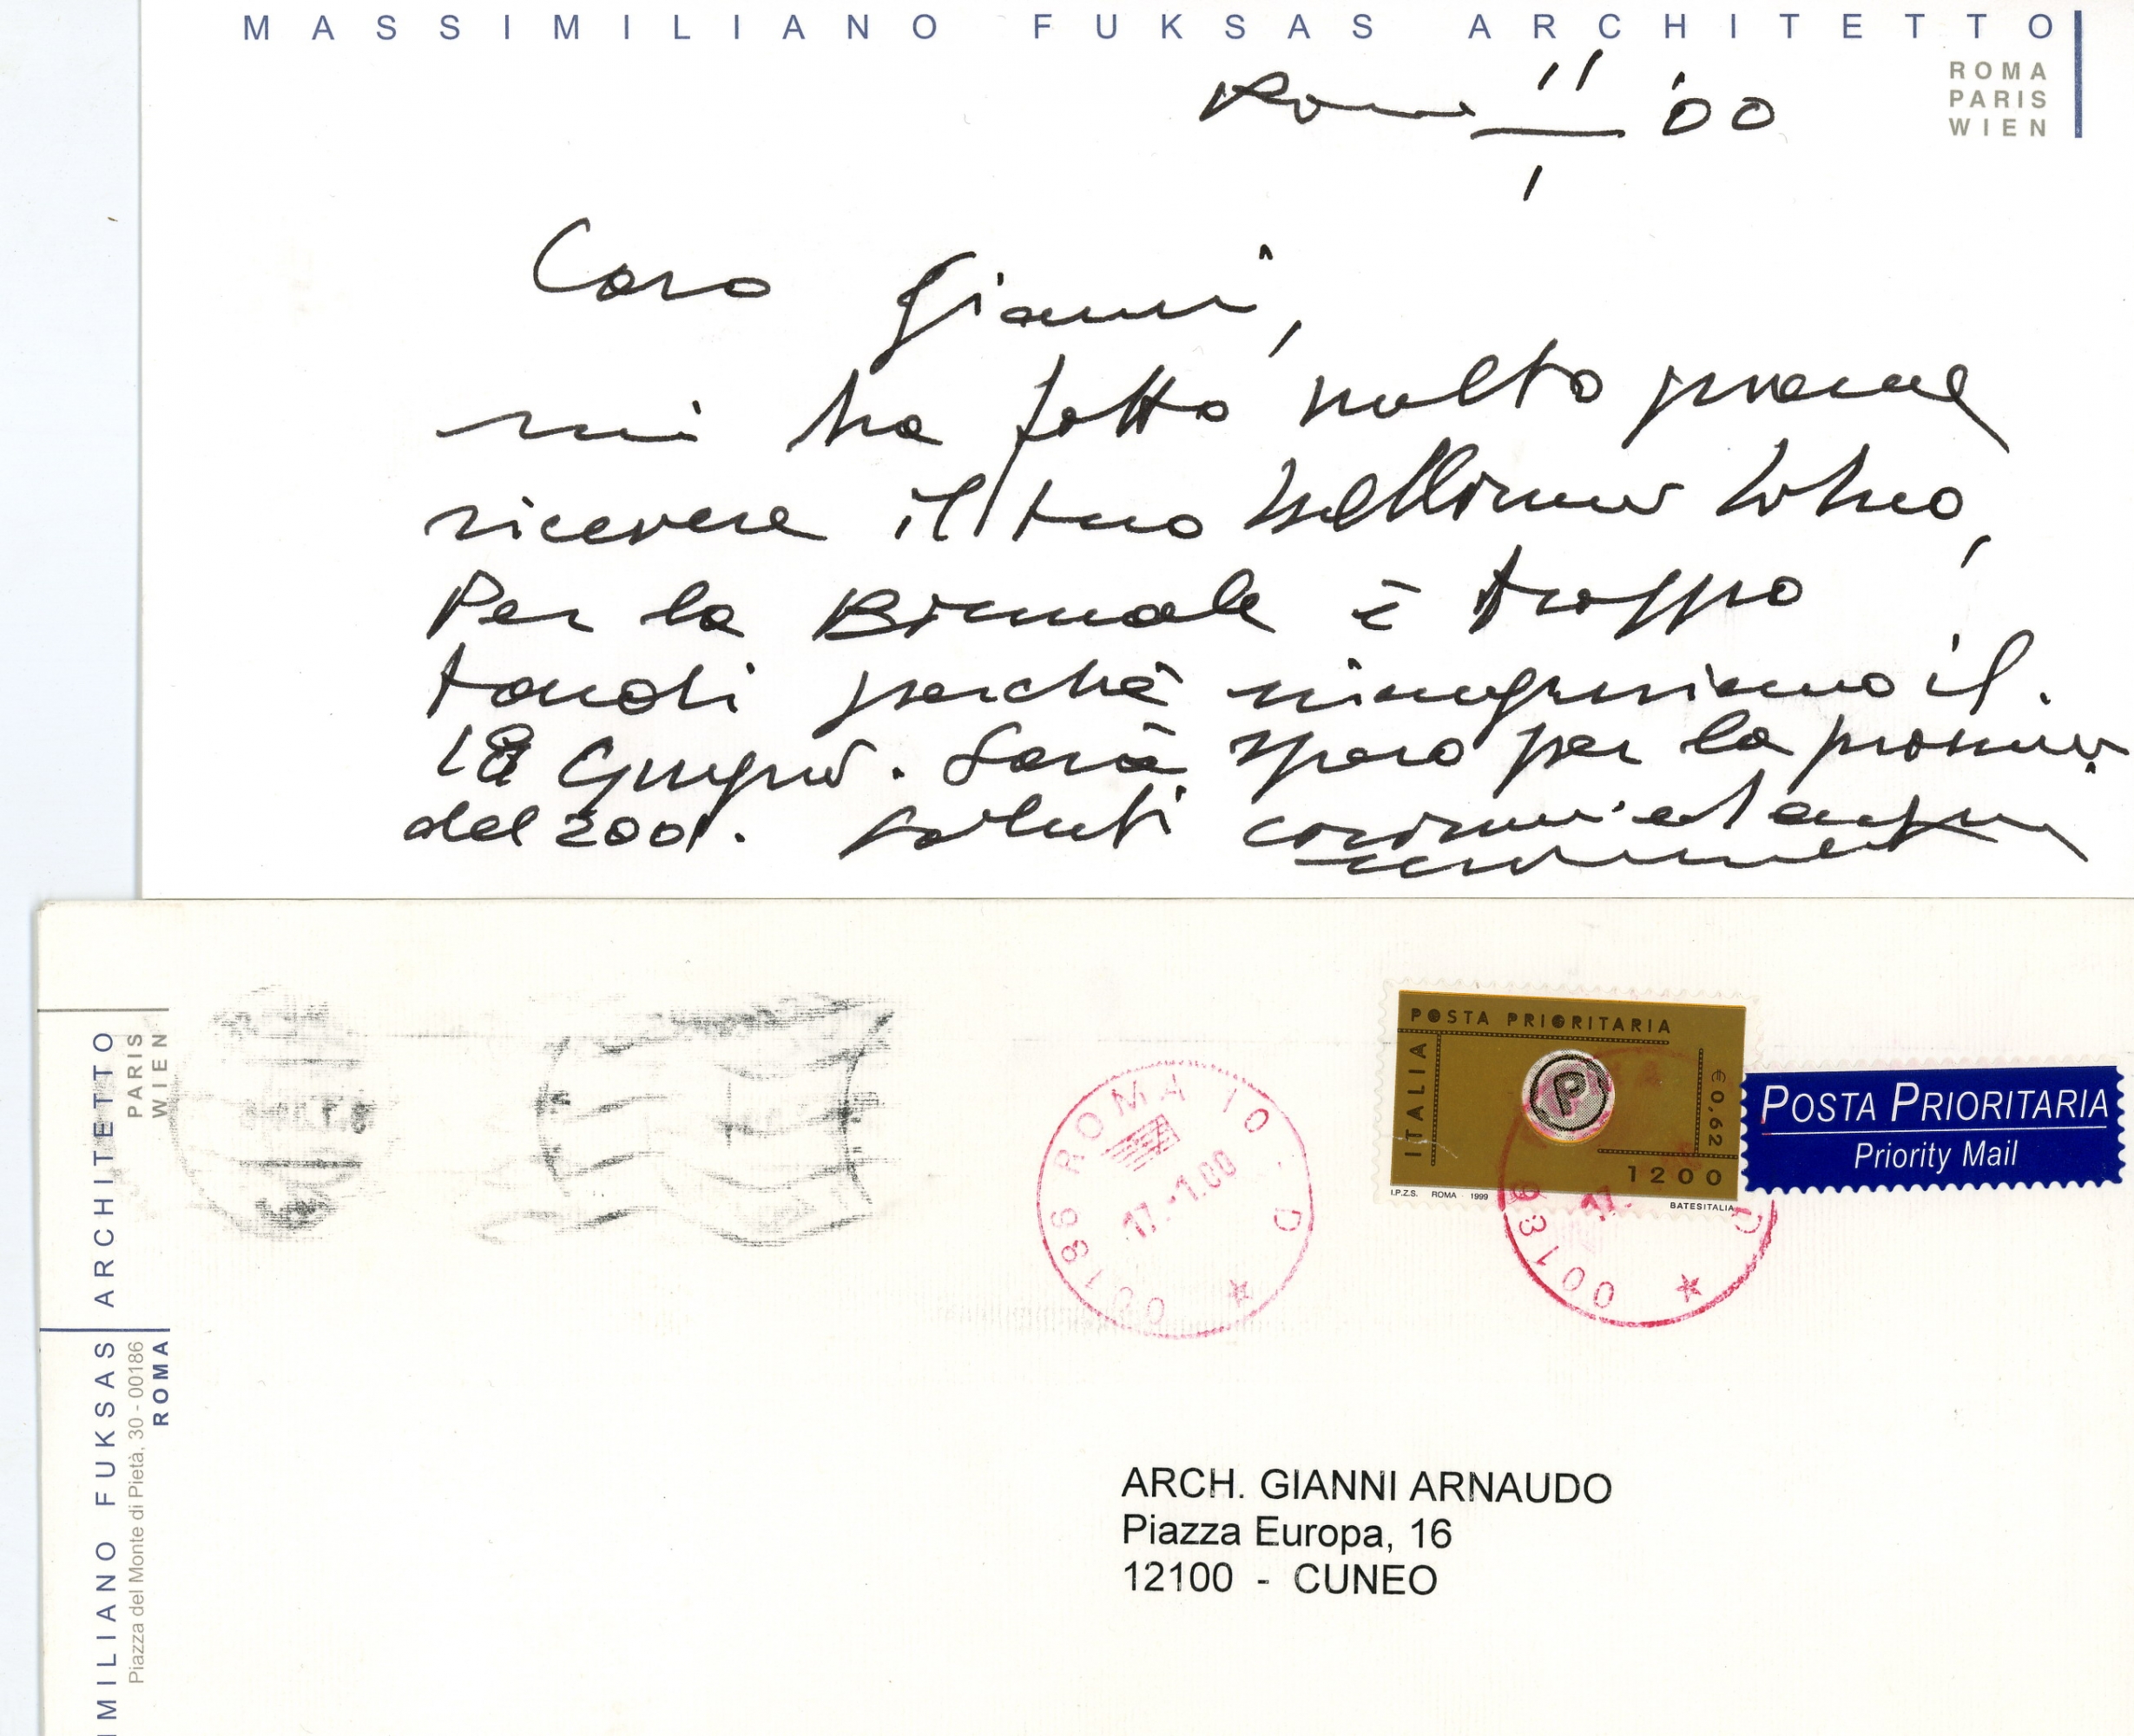 MASSIMILIANO FUKSAS ARCHITETTO
ROMA
PARIS
WIEN
Roma 11/1 '00
Caro Gianni,
mi ha fatto molto piacere
ricevere il tuo bellissimo libro,
Per la Biennale è troppo
tardi perché inauguriamo il
18 Giugno. Sarà spero per la prossima
del 2001. Saluti
POSTA PRIORITARIA
ITALIA
P
€ 0,62
1200
I.P.Z.S. ROMA 1999
BATESITALIA
POSTA PRIORITARIA
Priority Mail
00186 ROMA 10 D
17.-1.00
00186
17.-
D
MASSIMILIANO FUKSAS ARCHITETTO
PARIS
WIEN
Piazza del Monte di Pietà, 30 - 00186
ROMA
ARCH. GIANNI ARNAUDO
Piazza Europa, 16
12100 - CUNEO